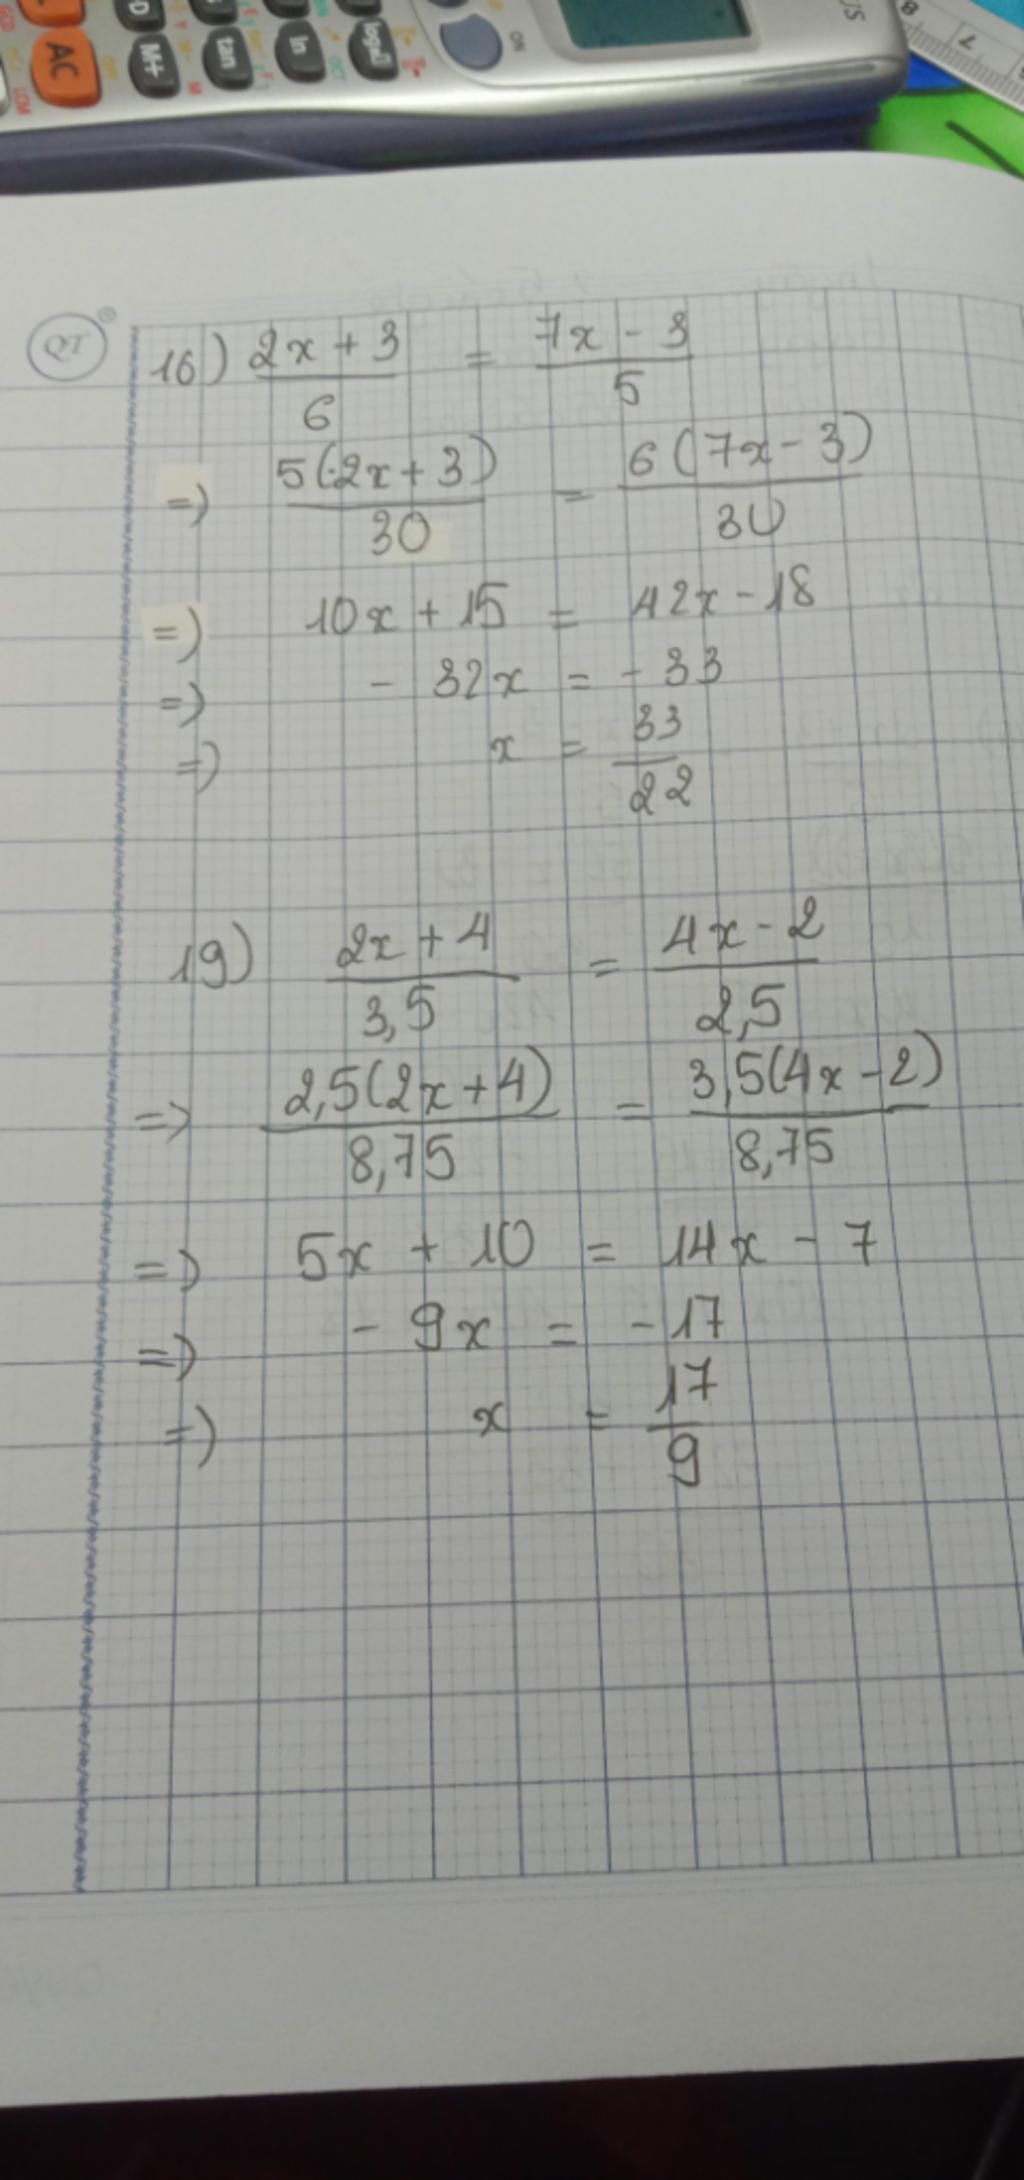 AC
M+
tan
ln
ON
8
7
QT
16) 2x + 3 / 6 = 7x - 3 / 5
=> 5(2x + 3) / 30 = 6(7x - 3) / 30
=> 10x + 15 = 42x - 18
=> - 32x = - 33
=> x = 33 / 22
19) 2x + 4 / 3,5 = 4x - 2 / 2,5
=> 2,5(2x + 4) / 8,75 = 3,5(4x - 2) / 8,75
=> 5x + 10 = 14x - 7
=> - 9x = - 17
=> x = 17 / 9